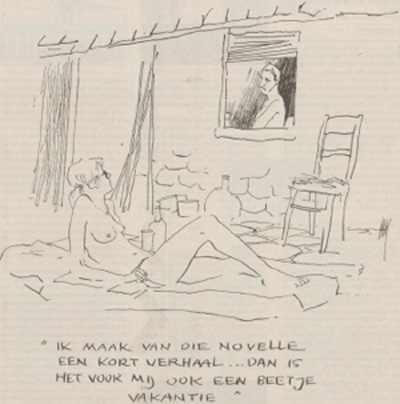 " IK MAAK VAN DIE NOVELLE
EEN KORT VERHAAL ... DAN IS
HET VOOR MIJ OOK EEN BEETJE
VAKANTIE "